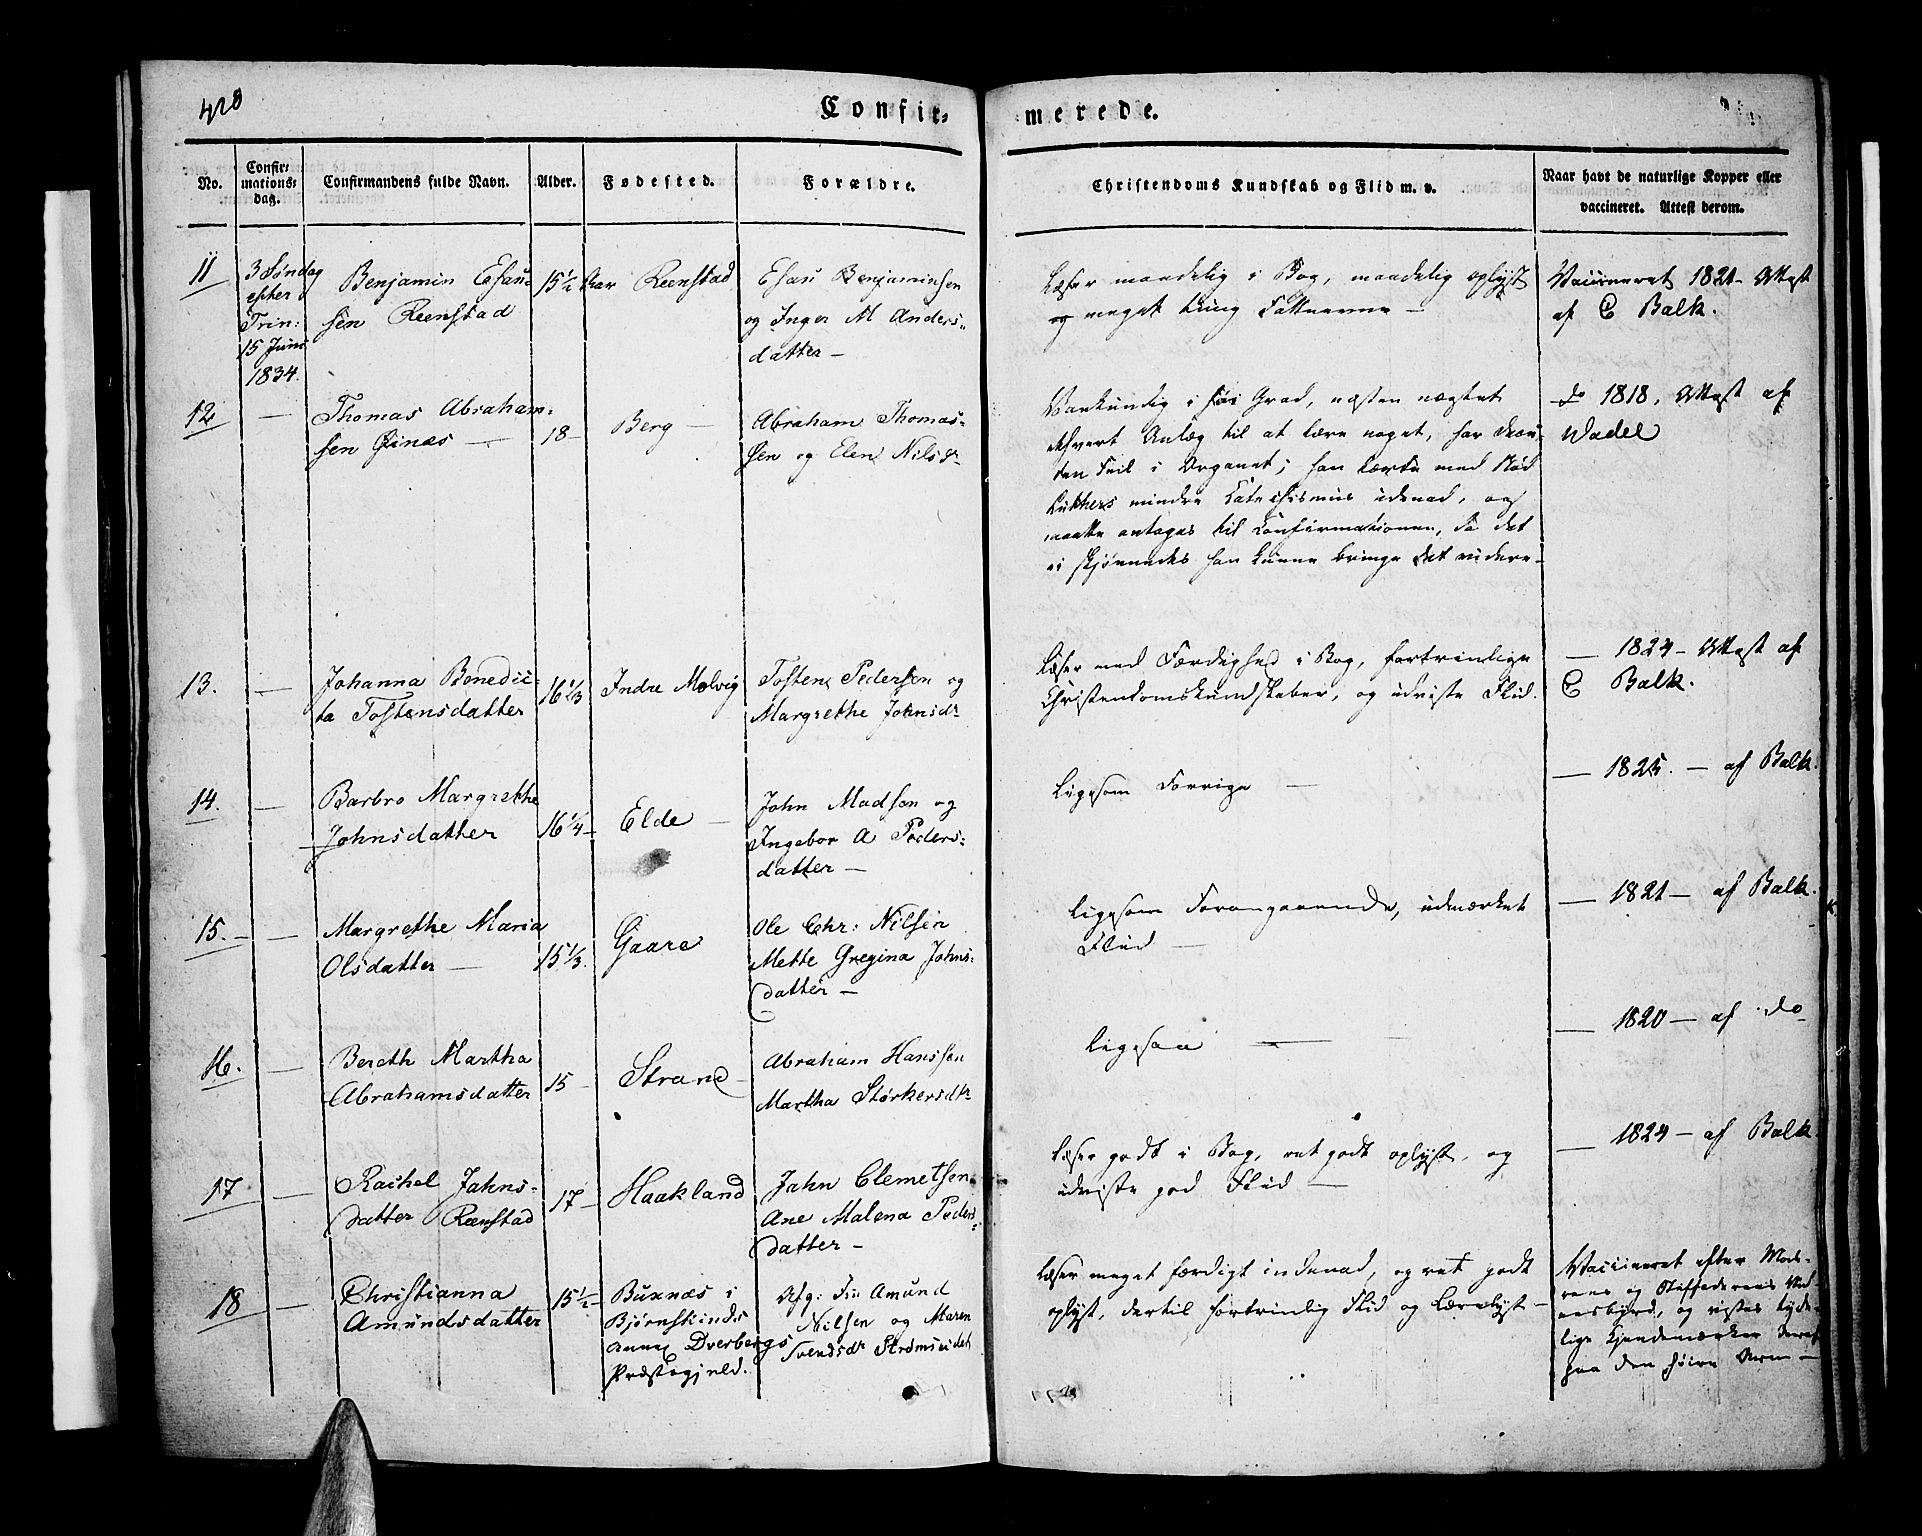 420
Confir-
merede.
No.
Confir-
mations-
dag.
Confirmandens fulde Navn.
Alder.
Fødested.
Forældre.
Christendoms Kundskab og Flid m. v.
Naar havt de naturlige Kopper eller
vaccineret. Attest derom.
11
3 Søndag
efter
Trin:
15 Juni
1834.
Benjamin Esau-
sen Reenstad
15½
Reenstad
Esau Benjaminsen
og Inger M Anders-
datter —
Læser maadelig i Bog, maadelig oplyst
og meget tung Fattneevne —
Vaccineret 1821 — Attest
af C Balk.
12
—
Thomas Abraham-
sen —
18 —
Berg —
Abraham Thomas-
sen og Elen Nilsdr
Vankundig i høi Grad, næsten nægtet
ethvert Anlæg til at lære noget, har desu-
den Feil i Organet; han lærte med Nød
Luthers mindre Catechismus udenad, og
maatte antages til Confirmationen, da det
ei skjønnedes han kunne bringe det videre —
do 1818, Attest af
Wadel
13.
—
Johanna Benedic-
ta Tostensdatter
16 1/3
Indre Molvig
Tosten Pedersen og
Margrethe Johnsdr
Læser med Færdighed i Bog, fortrinlige
Christendomskundskaber, og udviste Flid.
— 1824 — Attest af
C Balk.
14.
—
Barbro Margrethe
Johnsdatter
16 1/4 —
Elde —
John Madsen og
Ingebor A Peders-
datter —
Ligesom Forrige —
— 1825. — af Balk.
15. —
—
Margrethe Maria
Olsdatter —
15 1/3.
Gaare
Ole Chr: Nilsen
Mette Gregina Johns-
datter —
Ligesom Forangaaende, udmærket
Fliid —
— 1821 — af Balk.
16.
—
Bereth Martha
Abrahamsdatter
15 —
Strand —
Abraham Hanssen
Martha Størkersdtr
Ligesaa —
— 1820 — af do
17
—
Rachel Jahns-
datter Reenstad
17 —
Haakland
Jahn Clemetsen
Ane Malena Peders-
datter —
Læser godt i Bog, ret godt oplyst, og
udviste god Flid —
— 1824 — af Balk
18
—
Christianna
Amundsdatter
15½ —
Buxnæs i
Bjørnskinds
annex Dverbergs
Præstegjeld.
Afg: Amund
Nilsen og Maren
Svendsdr Strømsnidet
Læser meget færdigt indenad, og ret godt
oplyst, dertil fortrinlig Flid og Lærelyst —
Vaccineret efter Mode-
rens og Stiffaderens Ud-
sagn, og vistes tyde-
lige Kjendemærker deraf
paa den høire Arm —